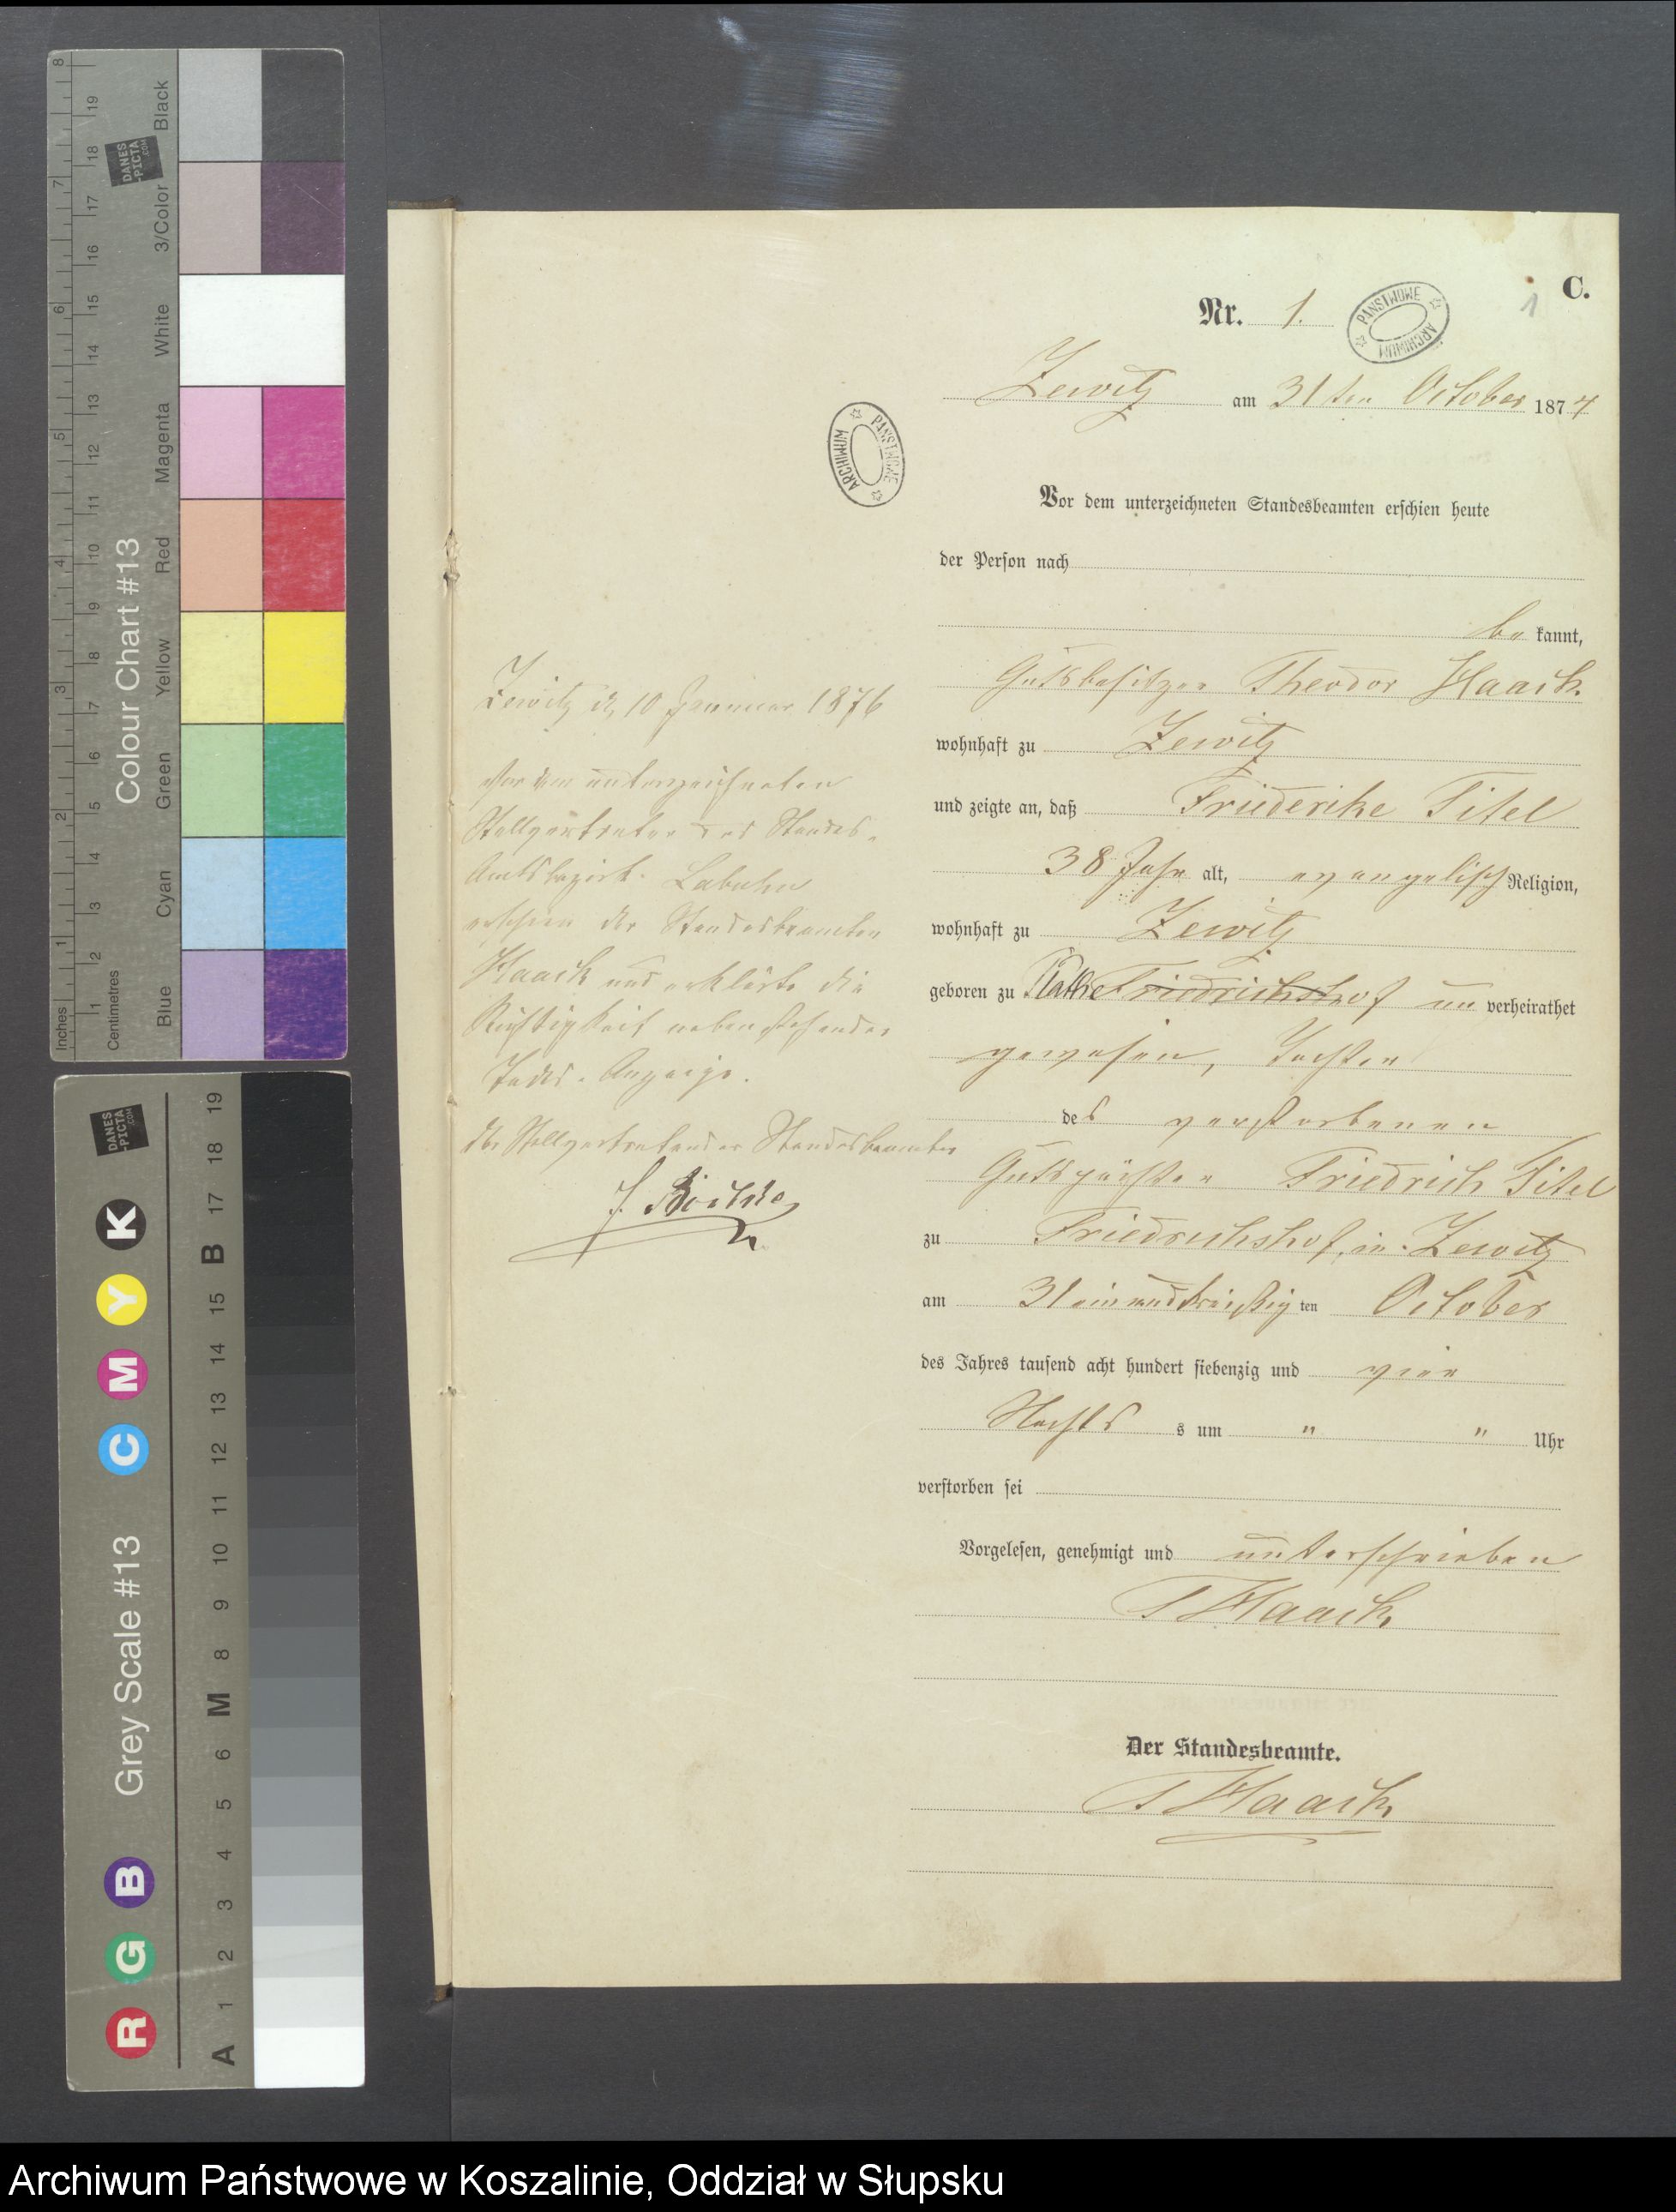 C.
Nr. 1.
1
PAŃSTWOWE ARCHIWUM
Zewitz am 31ten October 1874
PAŃSTWOWE ARCHIWUM
Vor dem unterzeichneten Standesbeamten erschien heute
der Person nach
be kannt,
Gutsbesitzer Theodor Haack
wohnhaft zu Zewitz
und zeigte an, daß Friederike Titel
38 Jahr alt, evangelisch Religion,
wohnhaft zu Zewitz
geboren zu Friedrichshof un verheirathet
gewesen, Tochter
des verstorbenen
Gutspächter Friedrich Titel
zu Friedrichshof, in Zewitz
am 31 einunddreißig ten October
des Jahres tausend acht hundert siebenzig und vier
Nachts s um " " Uhr
verstorben sei
Vorgelesen, genehmigt und unterschrieben
T Haack
Der Standesbeamte.
T Haack
Zewitz d, 10 Januar 1876
Vor dem unterzeichneten
Stellvertreter des Standes-
Amtsbezirk. Labuhn
erschien der Standesbeamten
Haack und erklärte die
Richtigkeit nebenstehender
Todes-Anzeige.
Der Stellvertretender Standesbeamter
Colour Chart #13
Inches 1 2 3 4 5 6 7 8
Centimetres 1 2 3 4 5 6 7 8 9 10 11 12 13 14 15 16 17 18 19
Blue Cyan Green Yellow Red Magenta White 3/Color Black
DANES-PICTA.COM
Grey Scale #13
R G B C M Y K
DANES-PICTA.COM
A 1 2 3 4 5 6 M 8 9 10 11 12 13 14 15 B 17 18 19
Archiwum Państwowe w Koszalinie, Oddział w Słupsku